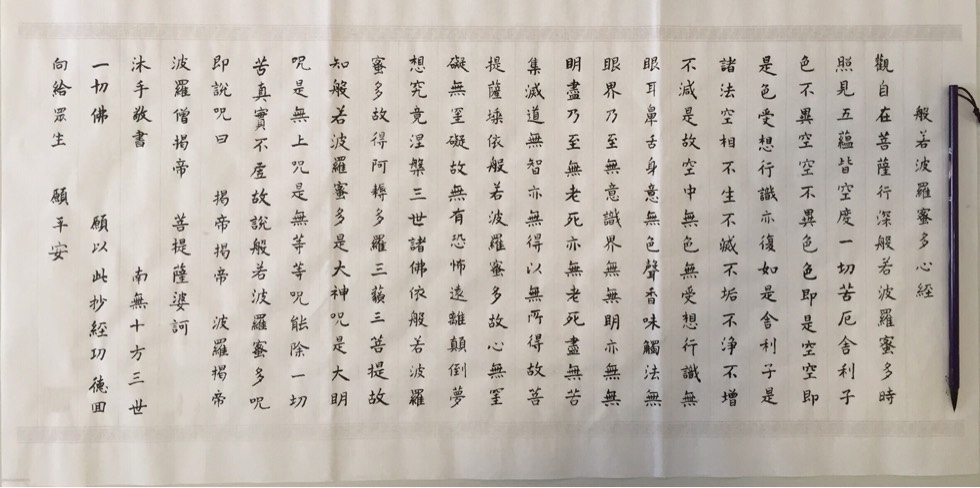 般若波羅蜜多心經
觀自在菩薩行深般若波羅蜜多時
照見五蘊皆空度一切苦厄舍利子
色不異空空不異色色即是空空即
是色受想行識亦復如是舍利子是
諸法空相不生不滅不垢不淨不增
不減是故空中無色無受想行識無
眼耳鼻舌身意無色聲香味觸法無
眼界乃至無意識界無無明亦無無
明盡乃至無老死亦無老死盡無苦
集滅道無智亦無得以無所得故菩
提薩埵依般若波羅蜜多故心無罣
礙無罣礙故無有恐怖遠離顛倒夢
想究竟涅槃三世諸佛依般若波羅
蜜多故得阿耨多羅三藐三菩提故
知般若波羅蜜多是大神咒是大明
咒是無上咒是無等等咒能除一切
苦真實不虛故說般若波羅蜜多咒
即說咒曰 揭帝揭帝 波羅揭帝
波羅僧揭帝 菩提薩婆訶
沐手敬書 南無十方三世
一切佛 願以此抄經功德回
向給眾生 願平安